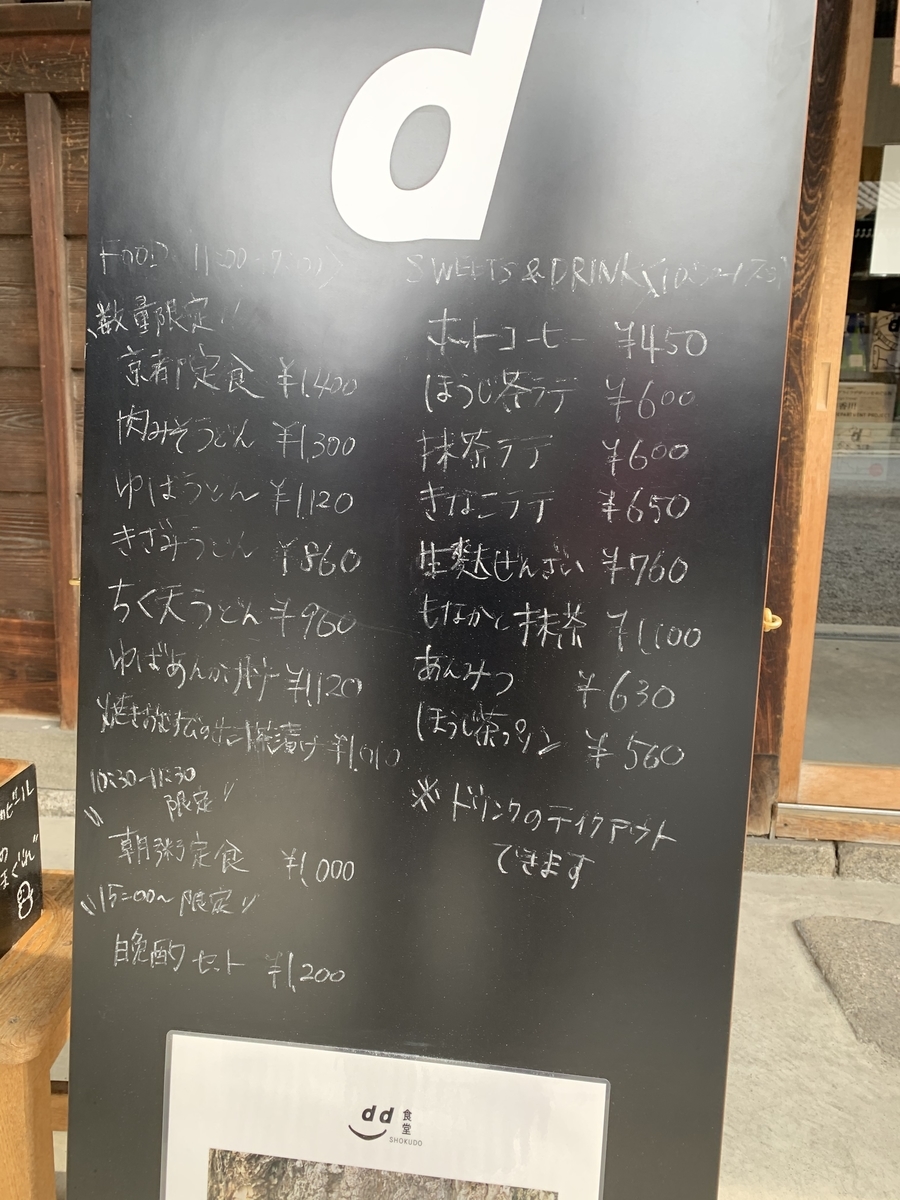 d
FOOD 11:00-17:00
数量限定
京都定食 ¥1,400
肉みそうどん ¥1,300
ゆばうどん ¥1,120
きざみうどん ¥860
ちく天うどん ¥960
ゆばあんかけ丼 ¥1,120
焼きおむすびのだし茶漬け ¥1,010
10:30-11:30
限定
朝粥定食 ¥1,000
15:00~限定
晩酌セット ¥1,200
SWEETS & DRINK
ホットコーヒー ¥450
ほうじ茶ラテ ¥600
抹茶ラテ ¥600
きなこラテ ¥650
生麩ぜんざい ¥760
もなかと抹茶 ¥1,100
あんみつ ¥630
ほうじ茶プリン ¥560
※ドリンクのテイクアウト
できます
dd食堂
SHOKUDO